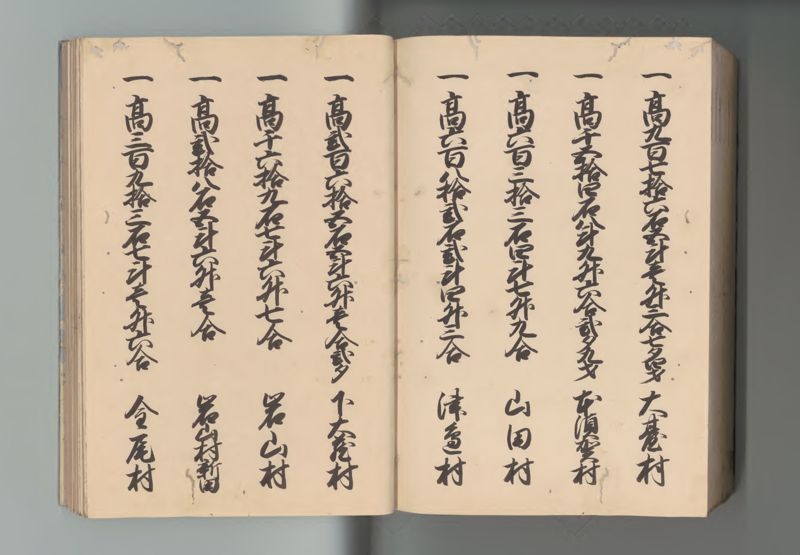 一 高九百七拾六石五斗壱升三合七夕四才 大蔵村
一 高千五拾四石八斗九升六合弐夕九才 本須賀村
一 高六百三拾三石四斗七升九合 山田村
一 高六百八拾弐石弐斗四升二合 津辺村
一 高弐百六拾五石五斗六升壱合弐夕 下大蔵村
一 高千六拾九石七斗六升七合 岩山村
一 高弐拾八石五斗六升壱合 岩山村新田
一 高三百九拾三石七斗壱升六合 金尾村